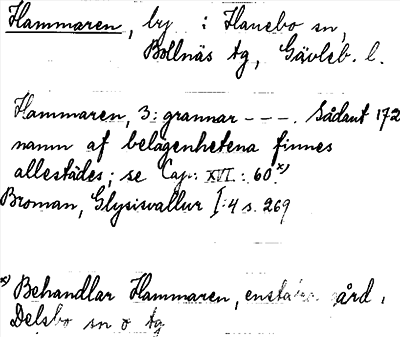 Hammaren, by i Hanebo sn,
Bollnäs tg, Gävleb. l.
Hammaren, 3: grannar – – –. Sådant 172
namn af belägenhetena finnes
allestädes; se Cap: XVI: 60.x)
Broman, Glysisvallur I:4 s. 269
x) Behandlar Hammaren, gård i
Delsbo sn o tg